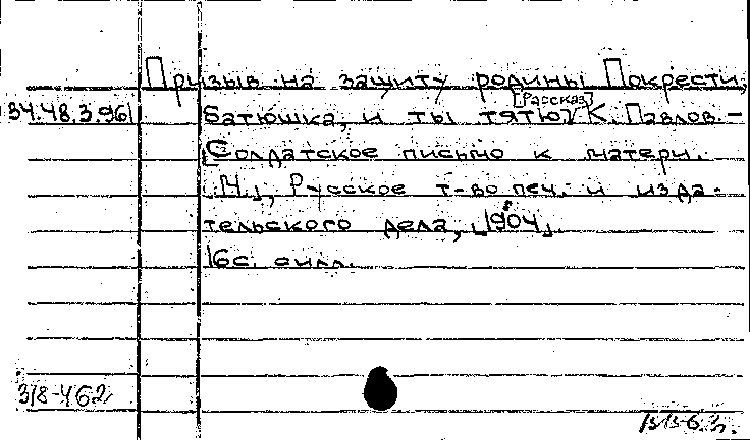 Призыв на защиту родины Покрести,
34.48.3.961 батюшка, и ты тятю] [Рассказ] К. Павлов. –
[Солдатское письмо к матери.
[М.], Русское т-во печ. и изда-
тельского дела, [1904].
16с. с илл.
318-462